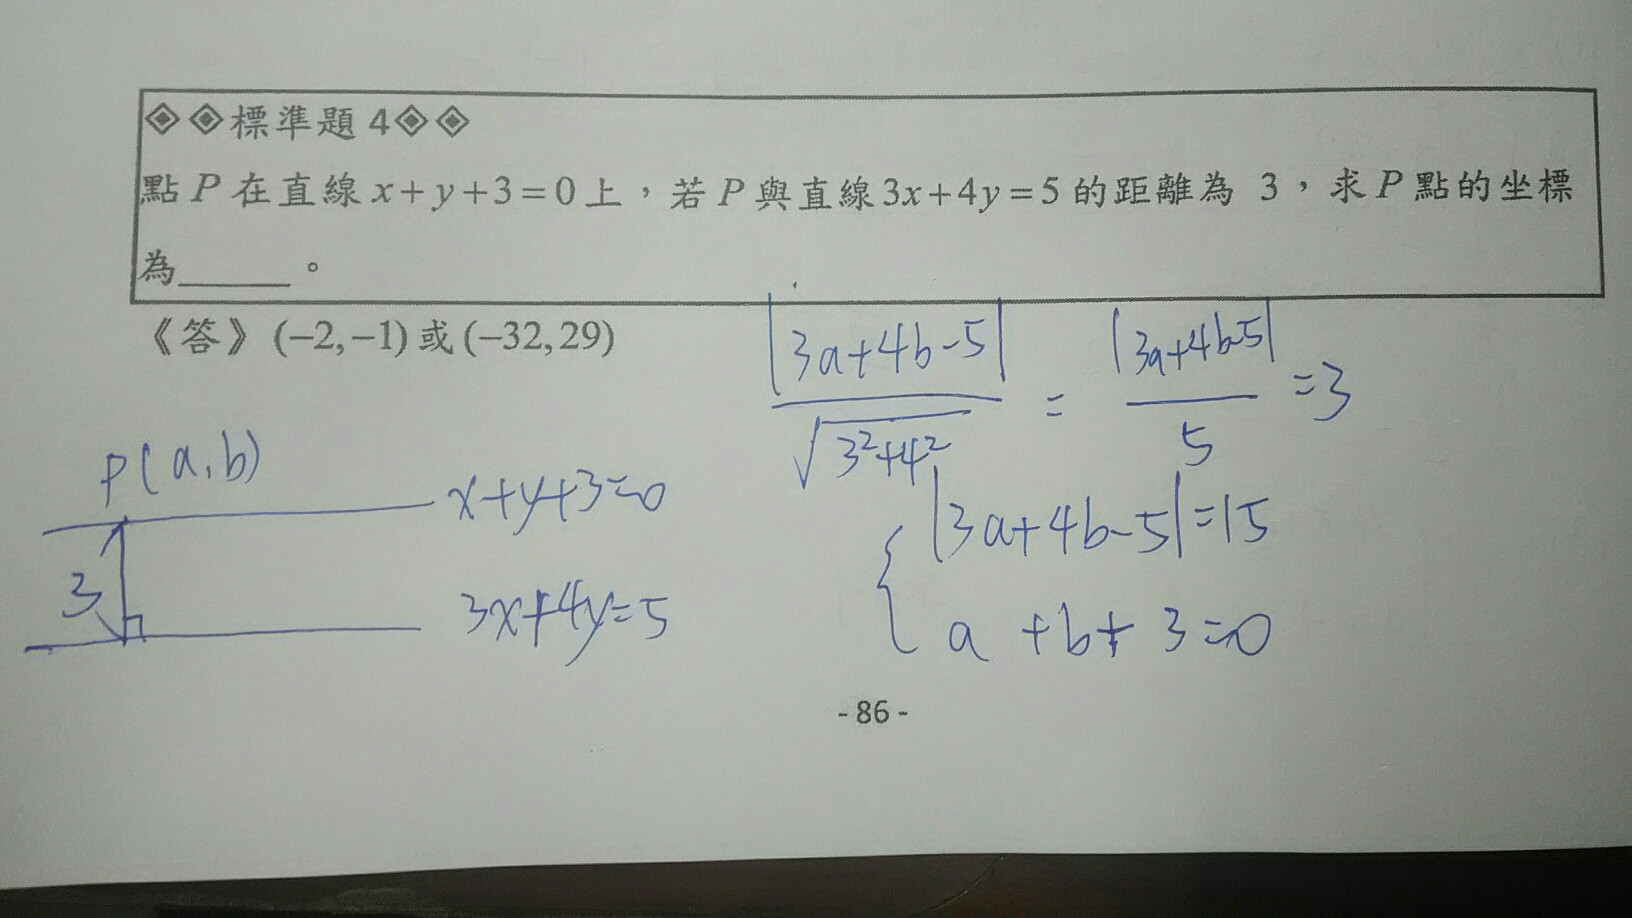 ◈◈標準題 4◈◈
點 P 在直線 x+y+3=0 上，若 P 與直線 3x+4y=5 的距離為 3，求 P 點的坐標
為______。
《答》(−2,−1) 或 (−32,29)
|3a+4b-5| / √(3²+4²) = |3a+4b-5| / 5 = 3
P(a,b)
x+y+3=0
|3a+4b-5|=15
3
3x+4y=5
a+b+3=0
- 86 -